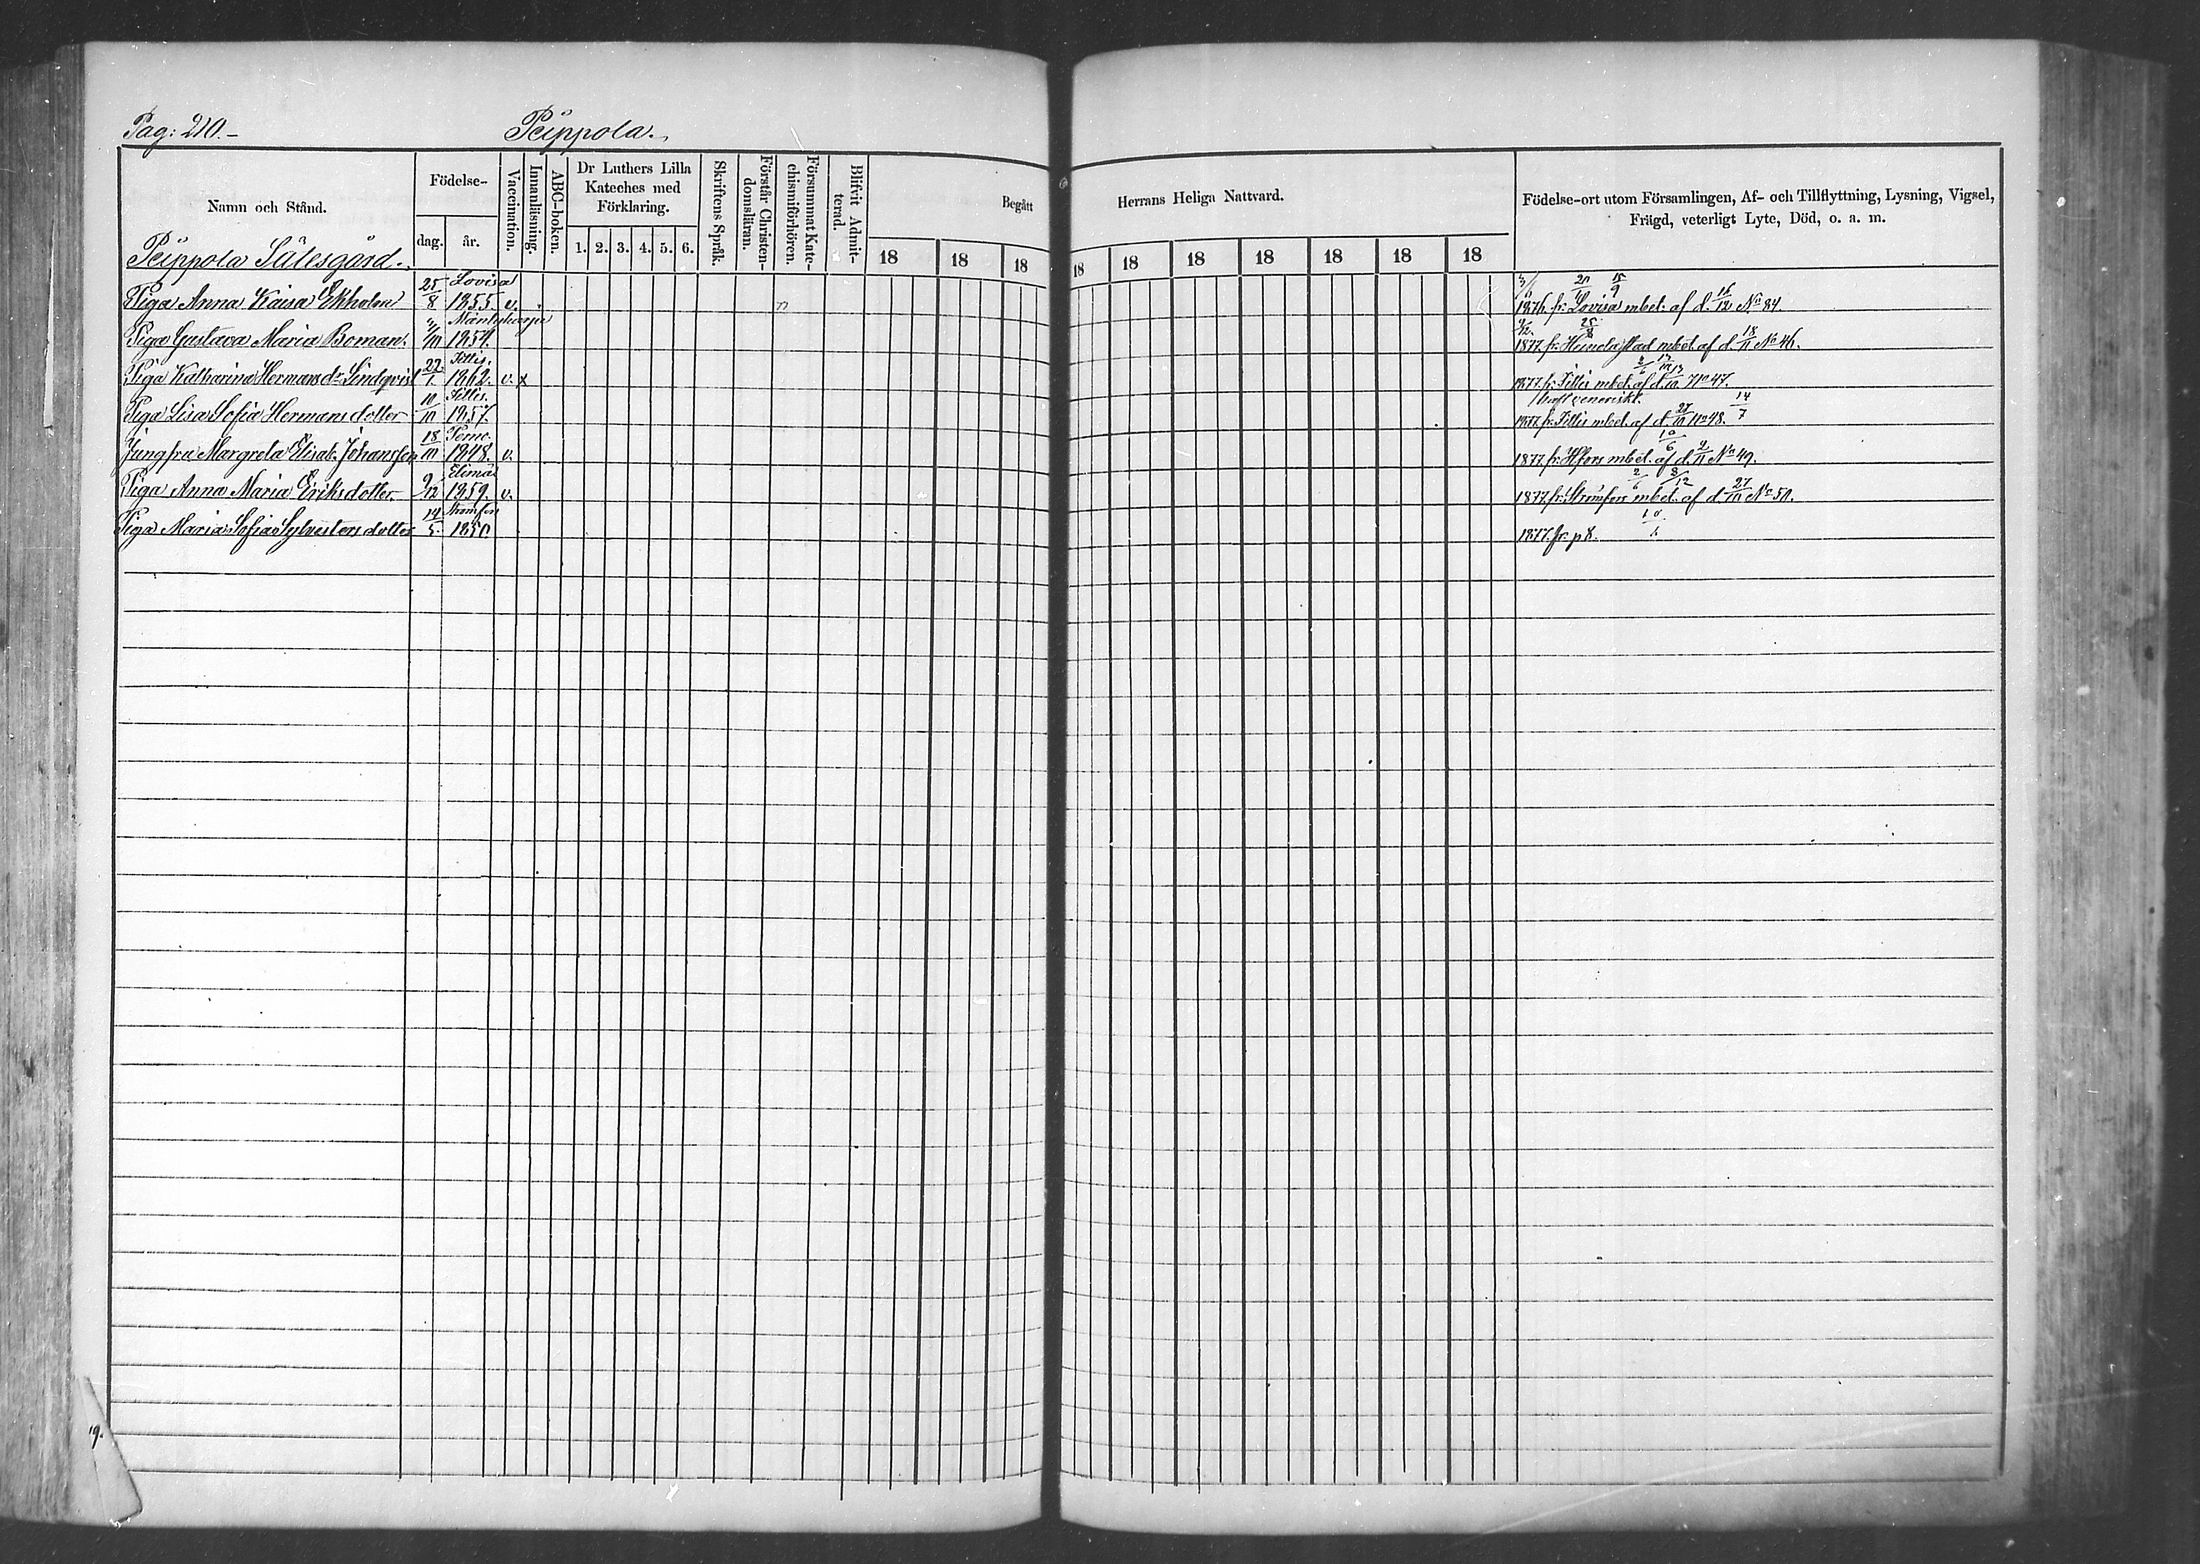 Pag: 210.
Peippola.
Namn och Stånd.
Födelse-
dag.
år.
Vaccination.
Innanläsning.
ABC-boken.
Dr Luthers Lilla
Kateches med
Förklaring.
1. 2. 3. 4. 5. 6.
Skriftens Språk.
Förstår Christen-
domsläran.
Försummat Kate-
chismiförhören.
Blifvit Admit-
terad.
Begått
Herrans Heliga Nattvard.
18 18 18 18 18 18 18 18 18 18
Födelse-ort utom Församlingen, Af- och Tillflyttning, Lysning, Vigsel,
Frägd, veterligt Lyte, Död, o. a. m.
Peippola Sätesgård.
Piga Anna Kaisa Ekholm 25/8 Lovisa 1855. v. 1876. fr. Lovisa mbet: af d. 16/12 No 84.
Piga Gustava Maria Boman. Mäntyharju 1877. fr. Heinola stad mbet. af d. 18/11 No 46.
Piga Katharina Hermansdr Lindqvist 22/1. 1862. v. x 1877. fr. mbet. af d. No 47.
Piga Lisa Sofia Hermansdotter 10/10 1857. haft venerisk.
1877. fr. mbet. af d. 27/10 No 48. 14/7
Jungfru Margreta Elisab. Johansson 18/10 1848. v. 1877. fr. Hfors mbet. af d. No 49.
Piga Anna Maria Eriksdotter 9/12 Elimä 1859. v. 1877. fr. Strömfors mbet. af d. 27/10 No 50.
Piga Maria Sofia Sylvestersdotter 14/5. Strömfors 1850 1877. fr. p 8.